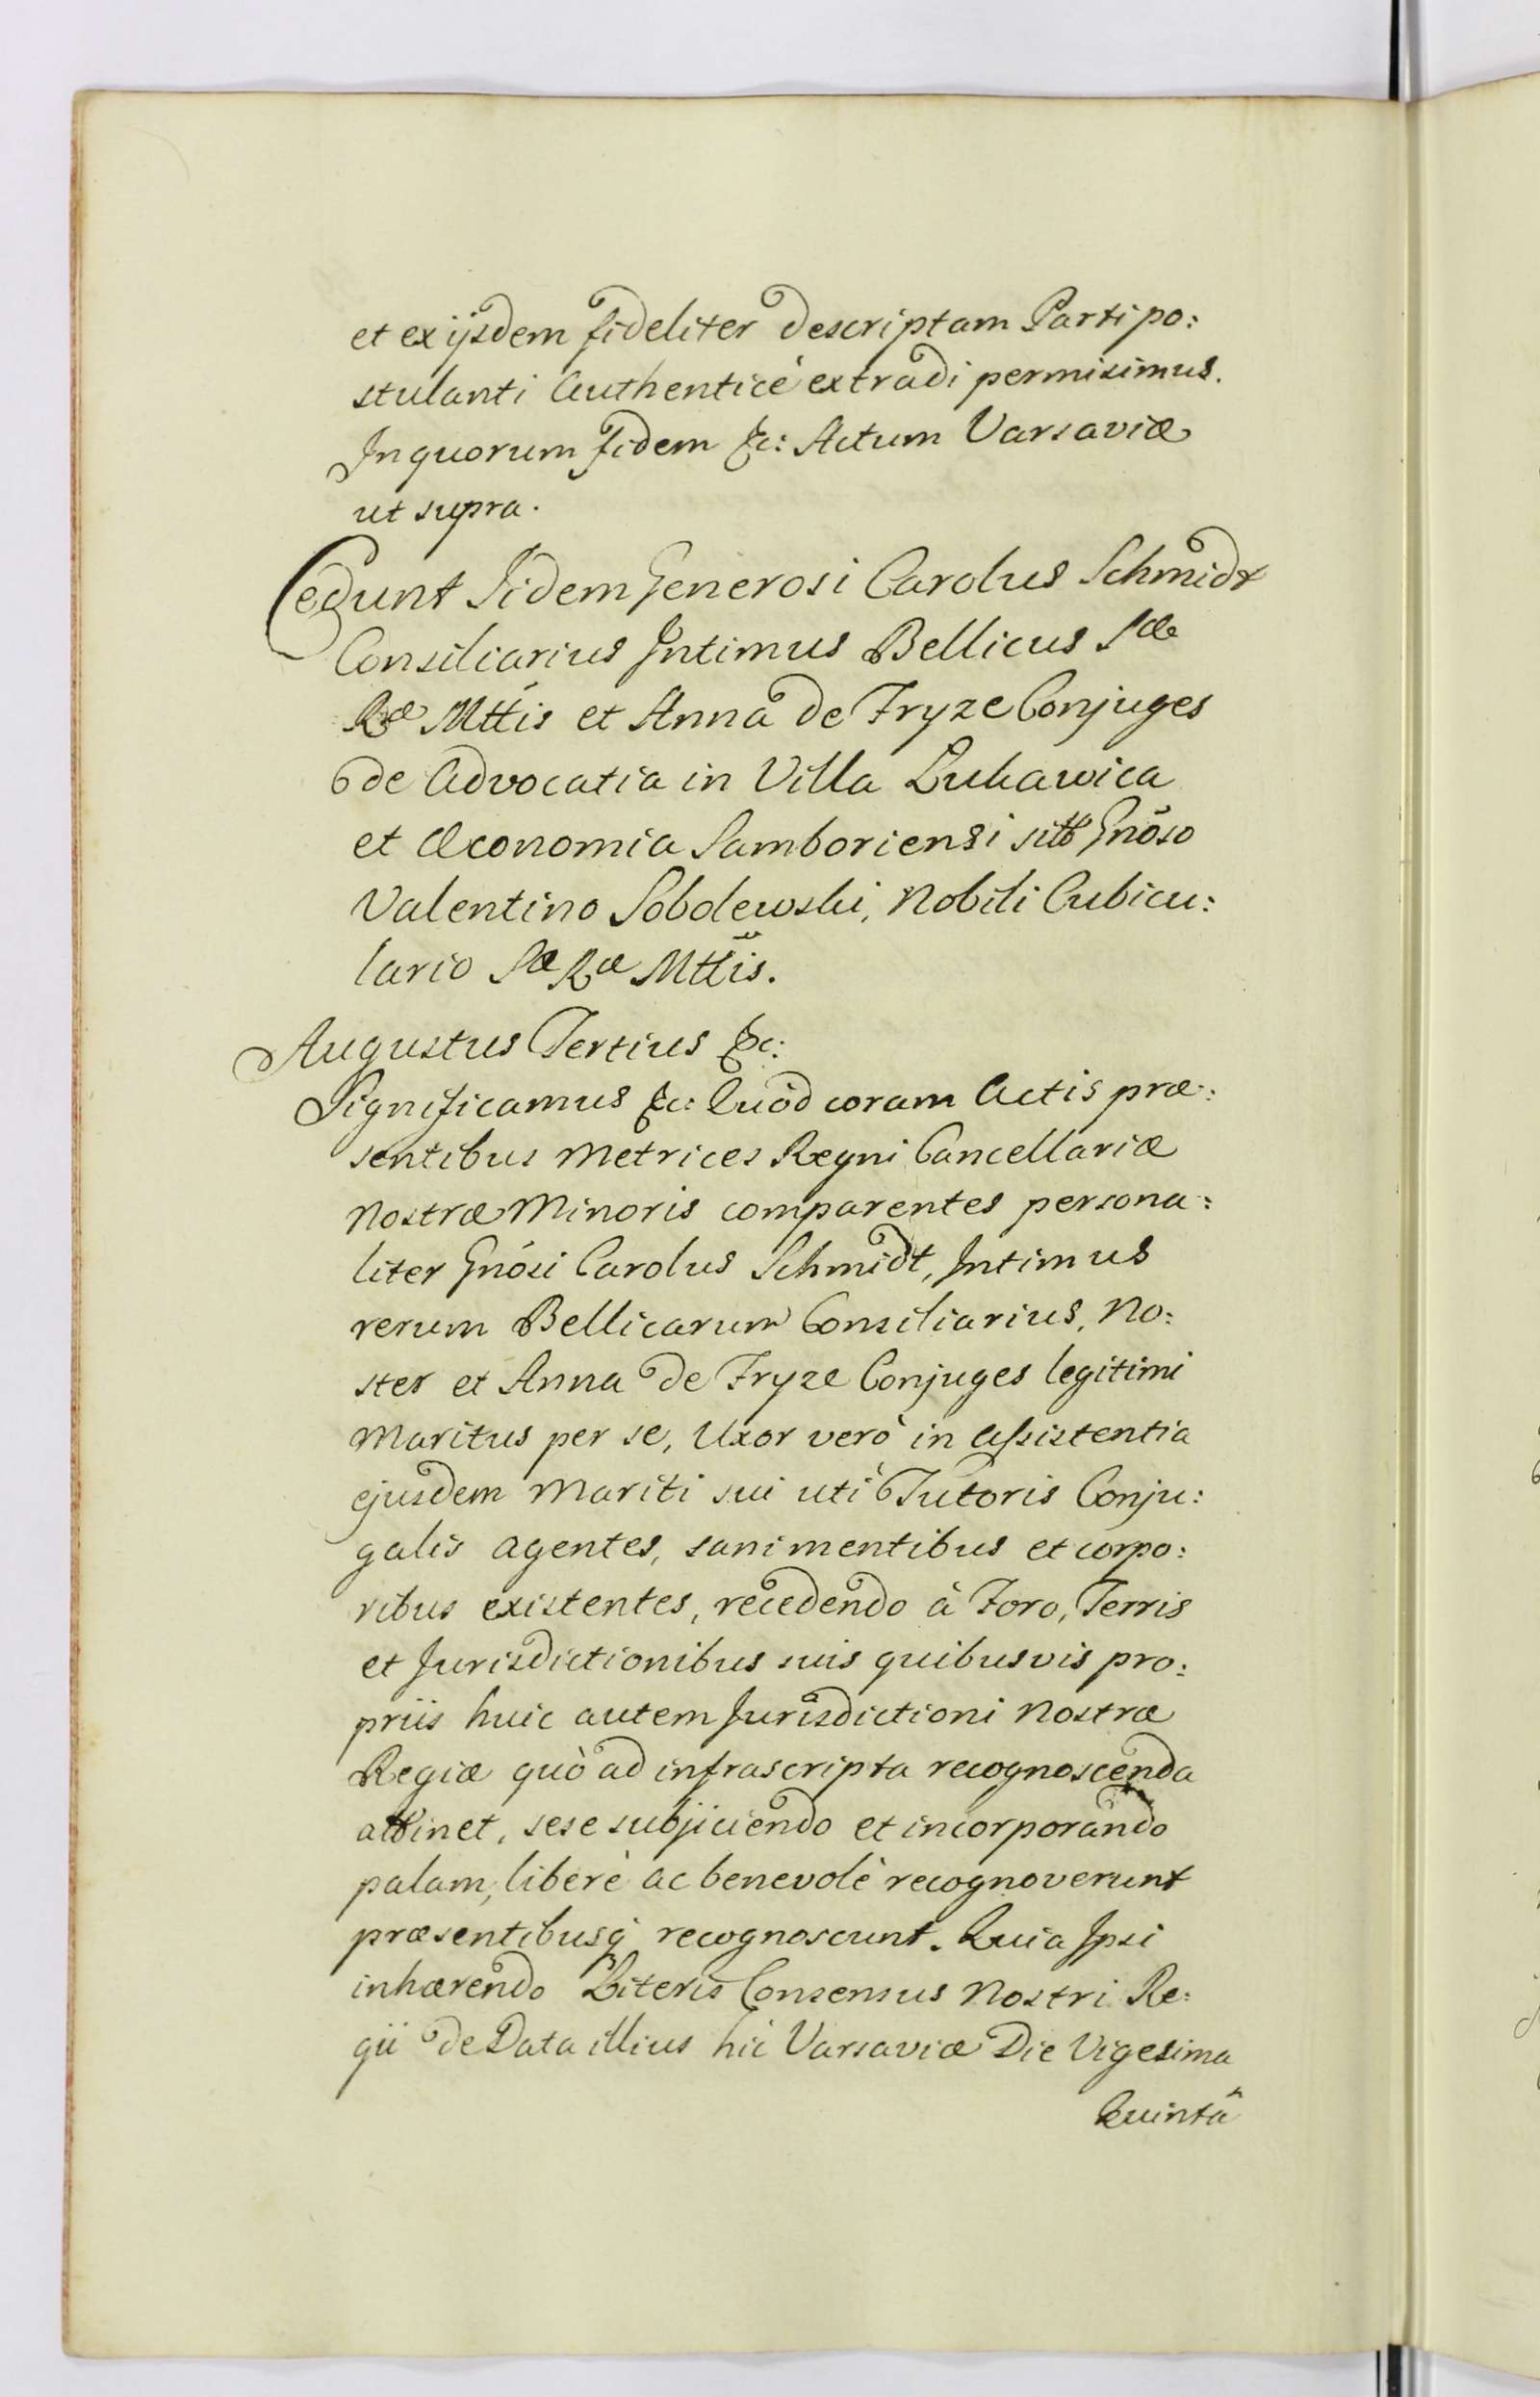 et ex ijsdem fideliter descriptam Parti po:
stulanti Authenticè extradi permisimus.
In quorum fidem &c: Actum Varsaviæ
ut supra.
Cedunt Iidem Generosi Carolus Schmidt
Consiliarius Intimus Bellicus Sæ
Ræ Mttis et Anna de Fryze Conjuges
de Advocatia in Villa Lukawica
et Œconomia Samboriensi sitta Gnõso
Valentino Sobolewski, Nobili Cubicu:
lario Sæ Ræ Mttis.
Augustus Tertius &c:
Significamus &c: Quòd coram Actis præ:
sentibus Metrices Regni Cancellariæ
Nostræ Minoris comparentes persona:
liter Gnósi Carolus Schmidt, Intimus
rerum Bellicarum Consiliarius, No:
ster et Anna de Fryze Conjuges legitimi
Maritus per se, Uxor verò in Assistentia
ejusdem Mariti sui utì Tutoris Conju:
galis agentes, sani mentibus et corpo:
ribus existentes, recedendo à Foro, Terris
et Jurisdictionibus suis quibusvis pro:
priis huic autem Jurisdictioni Nostræ
Regiæ quò ad infrascripta recognoscenda
attinet, sese subjiciendo et incorporando
palam, liberè ac benevolè recognoverunt
præsentibusq̀ recognoscunt. Quia Ipsi
inhærendo Literis Consensus Nostri Re:
gii de Data illius hìc Varsaviæ Die Vigesima
Quintâ